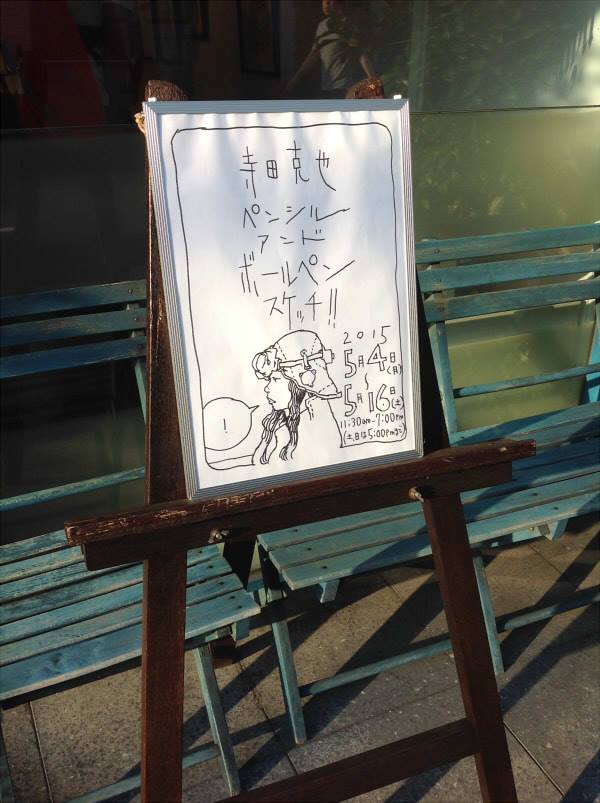 寺田克也
ペンシル
アンド
ボールペン
スケッチ!!
2015
5月4日(月)
~
5月16日(土)
11:30am-7:00pm
(土,日は5:00pmまで)
!